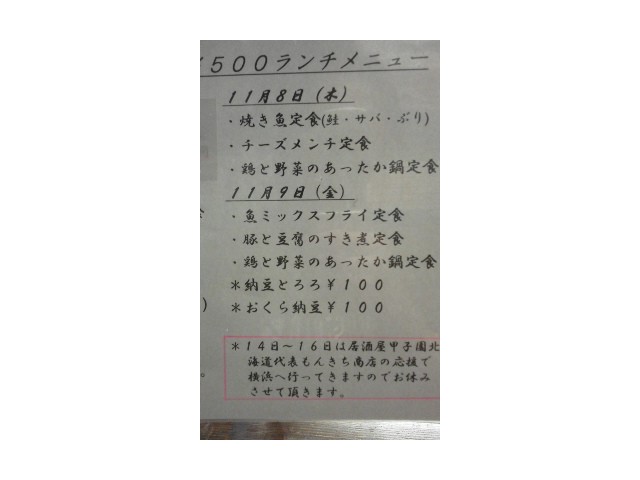 ¥500ランチメニュー
11月8日(木)
・焼き魚定食(鮭・サバ・ぶり)
・チーズメンチ定食
・鶏と野菜のあったか鍋定食
11月9日(金)
・魚ミックスフライ定食
・豚と豆腐のすき煮定食
・鶏と野菜のあったか鍋定食
*納豆とろろ¥100
*おくら納豆¥100
*14日~16日は居酒屋甲子園北
海道代表もんきち商店の応援で
横浜へ行ってきますのでお休み
させて頂きます。